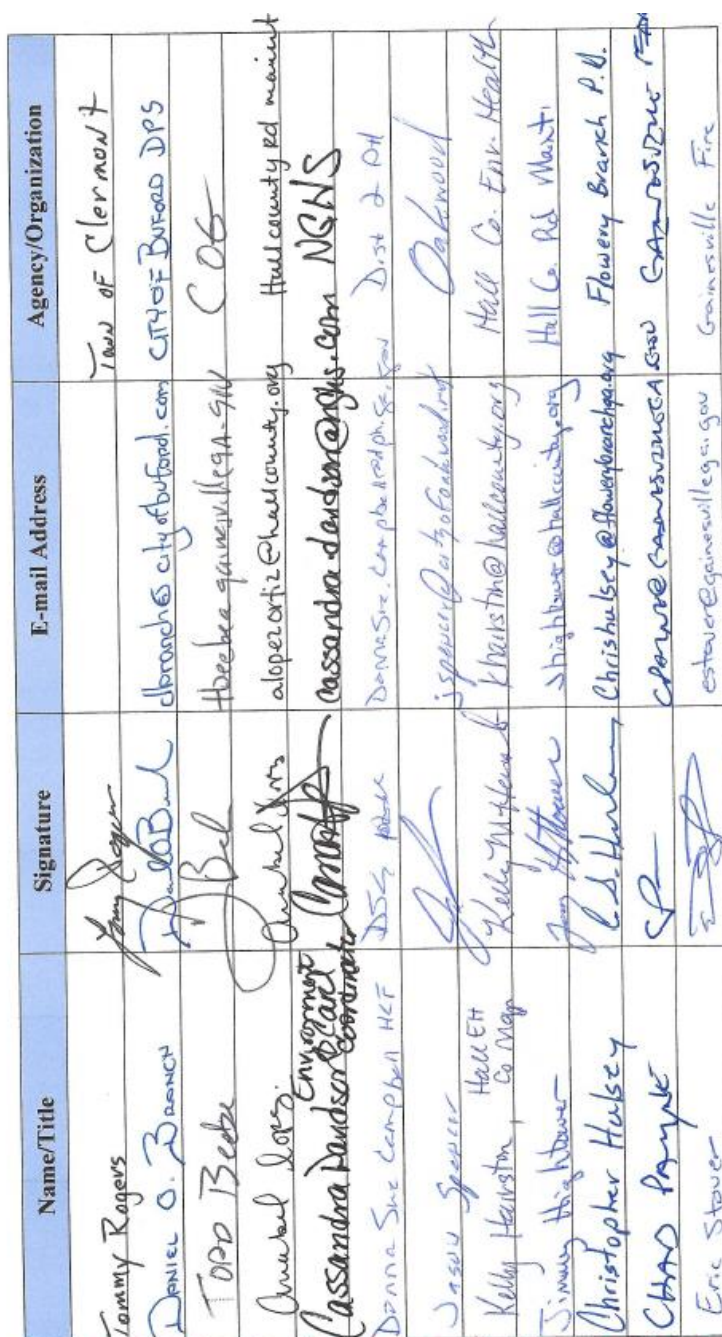 Name/Title Signature E-mail Address Agency/Organization
Tommy Rogers Town of Clermont
DANIEL O. BRANCH dbranch@cityofbuford.com CITY OF BUFORD DPS
TODD Beebe COG
Anabel Lopez. alopezortiz@hallcounty.org Hall county rd maint
Cassandra Environment of Care Coordinator NGHS
Donna Sue Campbell HCF DonnaSue.Campbell@dph.ga.gov Dist 2 PH
Jason Spencer jspencer@cityofoakwood.net Oakwood
Kelly Hairston, Hall EH Co Mgr khairston@hallcounty.org Hall Co. Env. Health
Jimmy Hightower jhightower@hallcounty.org Hall Co. Rd Maint.
Christopher Hulsey C S Hulsey Chrishulsey@flowerybranchga.org Flowery Branch P.D.
CHAD PAYNE CPAYNE@GAINESVILLEGA.GOV GAINESVILLE FIRE
Eric Stover estover@gainesvillega.gov Gainesville Fire